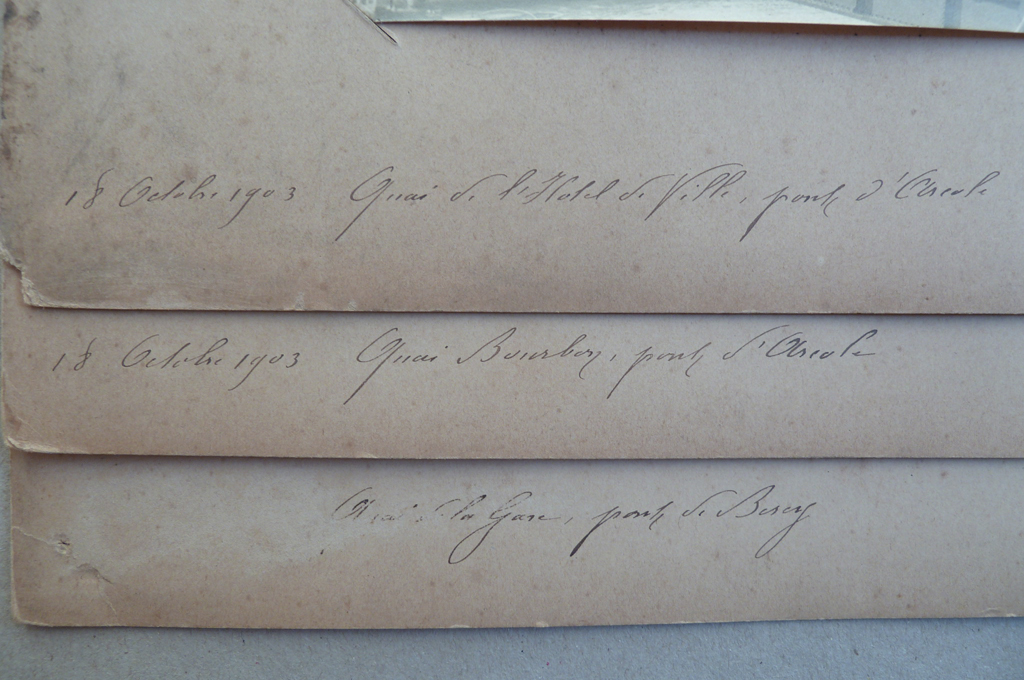 18 Octobre 1903 Quai de l'Hotel de Ville, pont d'Arcole
18 Octobre 1903 Quai Bourbon, pont d'Arcole
Quai de la Gare, pont de Bercy